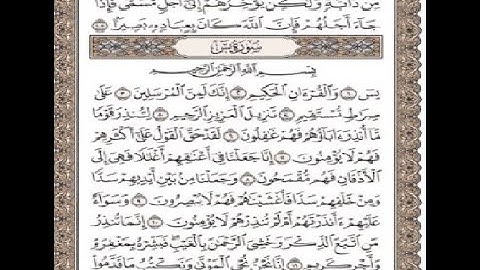 مِن دَآبَّةٍ وَلَٰكِن يُؤَخِّرُهُمْ إِلَىٰٓ أَجَلٍ مُّسَمًّى فَإِذَا
جَآءَ أَجَلُهُمْ فَإِنَّ ٱللَّهَ كَانَ بِعِبَادِهِۦ بَصِيرًۢا ٤٥
سُورَةُ يسٓ
بِسْمِ ٱللَّهِ ٱلرَّحْمَٰنِ ٱلرَّحِيمِ
يسٓ ١ وَٱلْقُرْءَانِ ٱلْحَكِيمِ ٢ إِنَّكَ لَمِنَ ٱلْمُرْسَلِينَ ٣ عَلَىٰ
صِرَٰطٍ مُّسْتَقِيمٍ ٤ تَنزِيلَ ٱلْعَزِيزِ ٱلرَّحِيمِ ٥ لِتُنذِرَ قَوْمًا
مَّآ أُنذِرَ ءَابَآؤُهُمْ فَهُمْ غَٰفِلُونَ ٦ لَقَدْ حَقَّ ٱلْقَوْلُ عَلَىٰٓ أَكْثَرِهِمْ
فَهُمْ لَا يُؤْمِنُونَ ٧ إِنَّا جَعَلْنَا فِىٓ أَعْنَٰقِهِمْ أَغْلَٰلًا فَهِىَ إِلَى
ٱلْأَذْقَانِ فَهُم مُّقْمَحُونَ ٨ وَجَعَلْنَا مِنۢ بَيْنِ أَيْدِيهِمْ سَدًّا
وَمِنْ خَلْفِهِمْ سَدًّا فَأَغْشَيْنَٰهُمْ فَهُمْ لَا يُبْصِرُونَ ٩ وَسَوَآءٌ
عَلَيْهِمْ ءَأَنذَرْتَهُمْ أَمْ لَمْ تُنذِرْهُمْ لَا يُؤْمِنُونَ ١٠ إِنَّمَا تُنذِرُ
مَنِ ٱتَّبَعَ ٱلذِّكْرَ وَخَشِىَ ٱلرَّحْمَٰنَ بِٱلْغَيْبِ فَبَشِّرْهُ بِمَغْفِرَةٍ
وَأَجْرٍ كَرِيمٍ ١١ إِنَّا نَحْنُ نُحْىِ ٱلْمَوْتَىٰ وَنَكْتُبُ مَا قَدَّمُوا۟